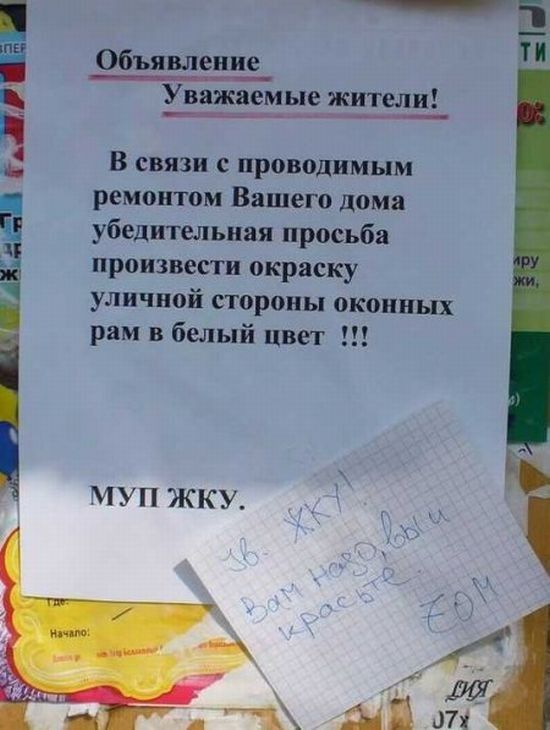 Объявление
Уважаемые жители!
В связи с проводимым
ремонтом Вашего дома
убедительная просьба
произвести окраску
уличной стороны оконных
рам в белый цвет !!!
МУП ЖКУ.
Ув. ЖКУ!
Вам надо, вы и
красьте.
ТИ
иру
жи,
Где:
Начало:
ДИЯ
07х